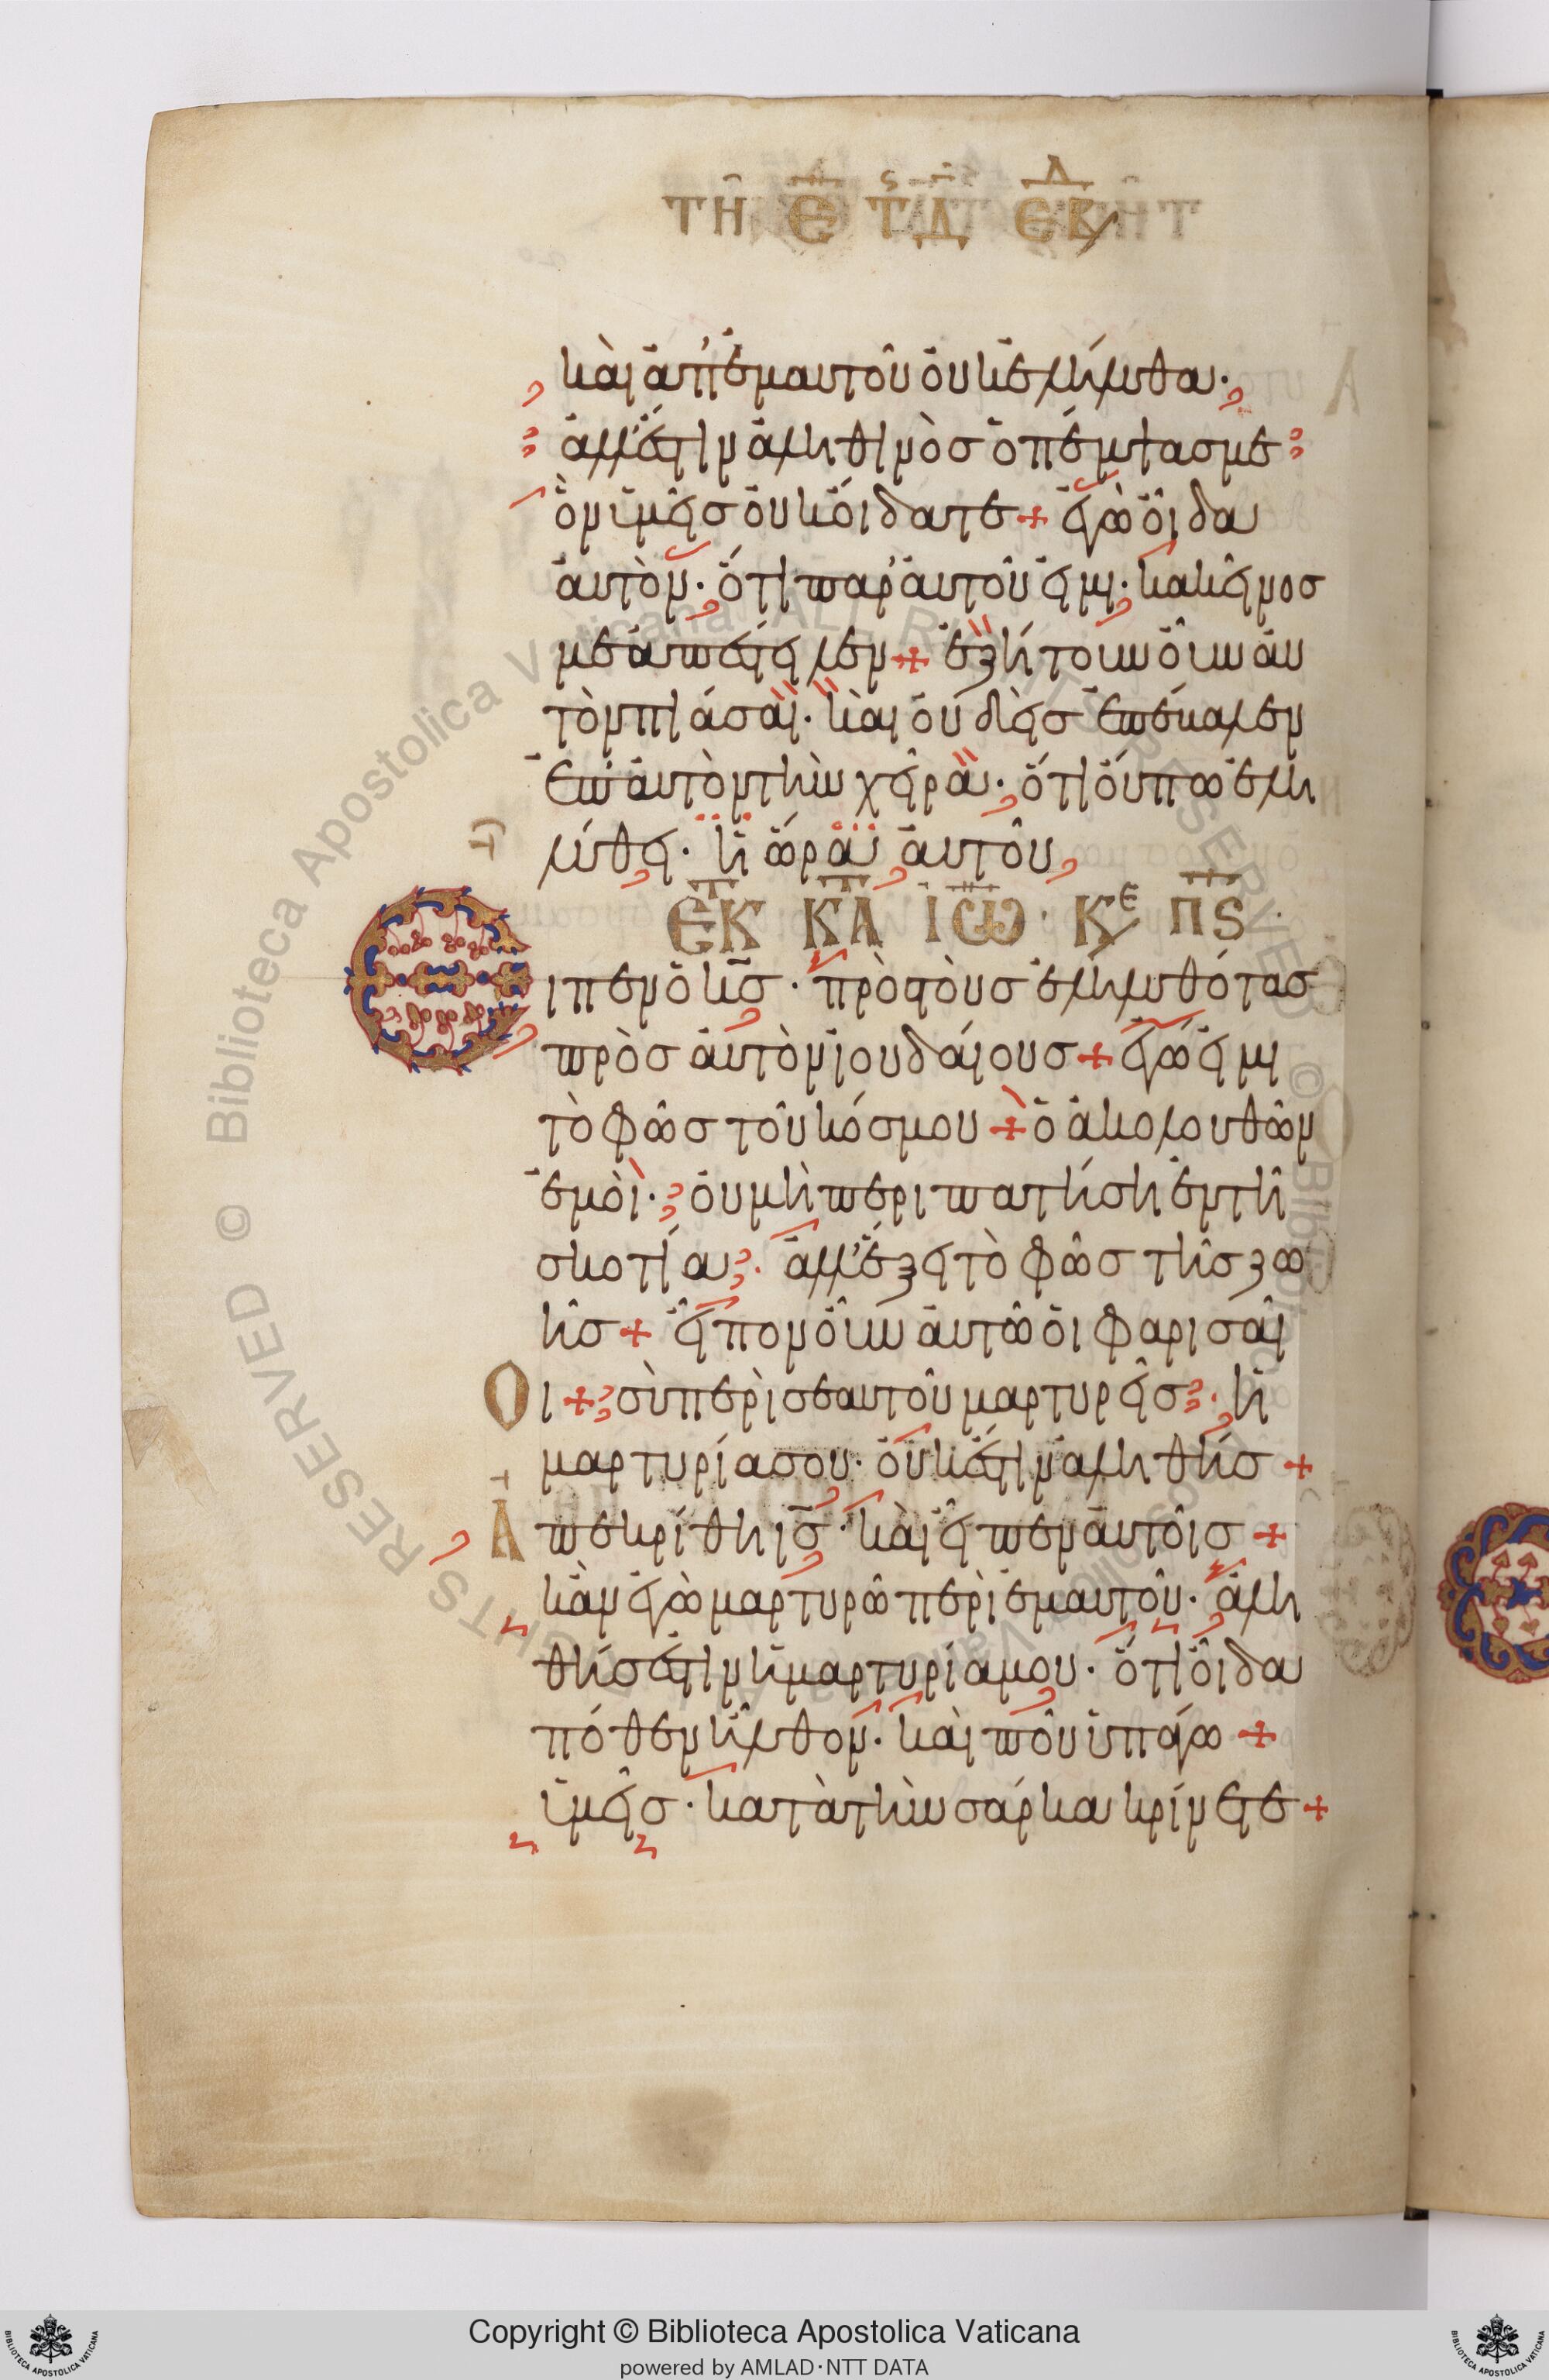 ΤΗ Ε ΤΗϹ Δ ΕΒΔ
καὶ ἀπ' ἐμαυτοῦ οὐκ ἐλήλυθα·
ἀλλ' ἔστιν ἀληθινὸσ ὁ πέμψασ με
ὃν ὑμεῖσ οὐκ οἴδατε + ἐγὼ οἶδα
αὐτὸν· ὅτι παρ' αὐτοῦ εἰμι· κἀκεῖνοσ
με ἀπέστειλεν + ἐζήτουν οὖν αὐ
τὸν πιάσαι· καὶ οὐδεὶσ ἐπέβαλεν
ἐπ' αὐτὸν τὴν χεῖρα· ὅτι οὔπω ἐλη
λύθει· ἡ ὥρα αὐτοῦ
ἘΚ ΚΑ ἸΩ· ΚΕ ΠϚ·
Ειπεν ὁ κσ· πρὸσ τοὺσ ἐληλυθότασ
πρὸσ αὐτὸν ἰουδαίουσ + ἐγώ εἰμι
τὸ φῶσ τοῦ κόσμου + ὁ ἀκολουθῶν
ἐμοὶ· οὐ μὴ περιπατήση ἐν τῆ
σκοτία· ἀλλ' ἕξει τὸ φῶσ τῆσ ζω
ῆσ + εἶπον οὖν αὐτῶ οἱ φαρισαῖ
Οι + σὺ περὶ σεαυτοῦ μαρτυρεῖσ· ἡ
μαρτυρία σου· οὐκ ἔστιν ἀληθήσ +
Ἀπεκρίθη ισ· καὶ εἶπεν αὐτοῖσ +
κἂν ἐγὼ μαρτυρῶ περὶ ἐμαυτοῦ· ἀλη
θήσ ἐστιν ἡ μαρτυρία μου· ὅτι οἶδα
πόθεν ἦλθον· καὶ ποῦ ὑπάγω +
ὑμεῖσ· κατὰ τὴν σάρκα κρίνετε +
© Biblioteca Apostolica Vaticana ALL RIGHTS RESERVED
Copyright © Biblioteca Apostolica Vaticana
powered by AMLAD·NTT DATA